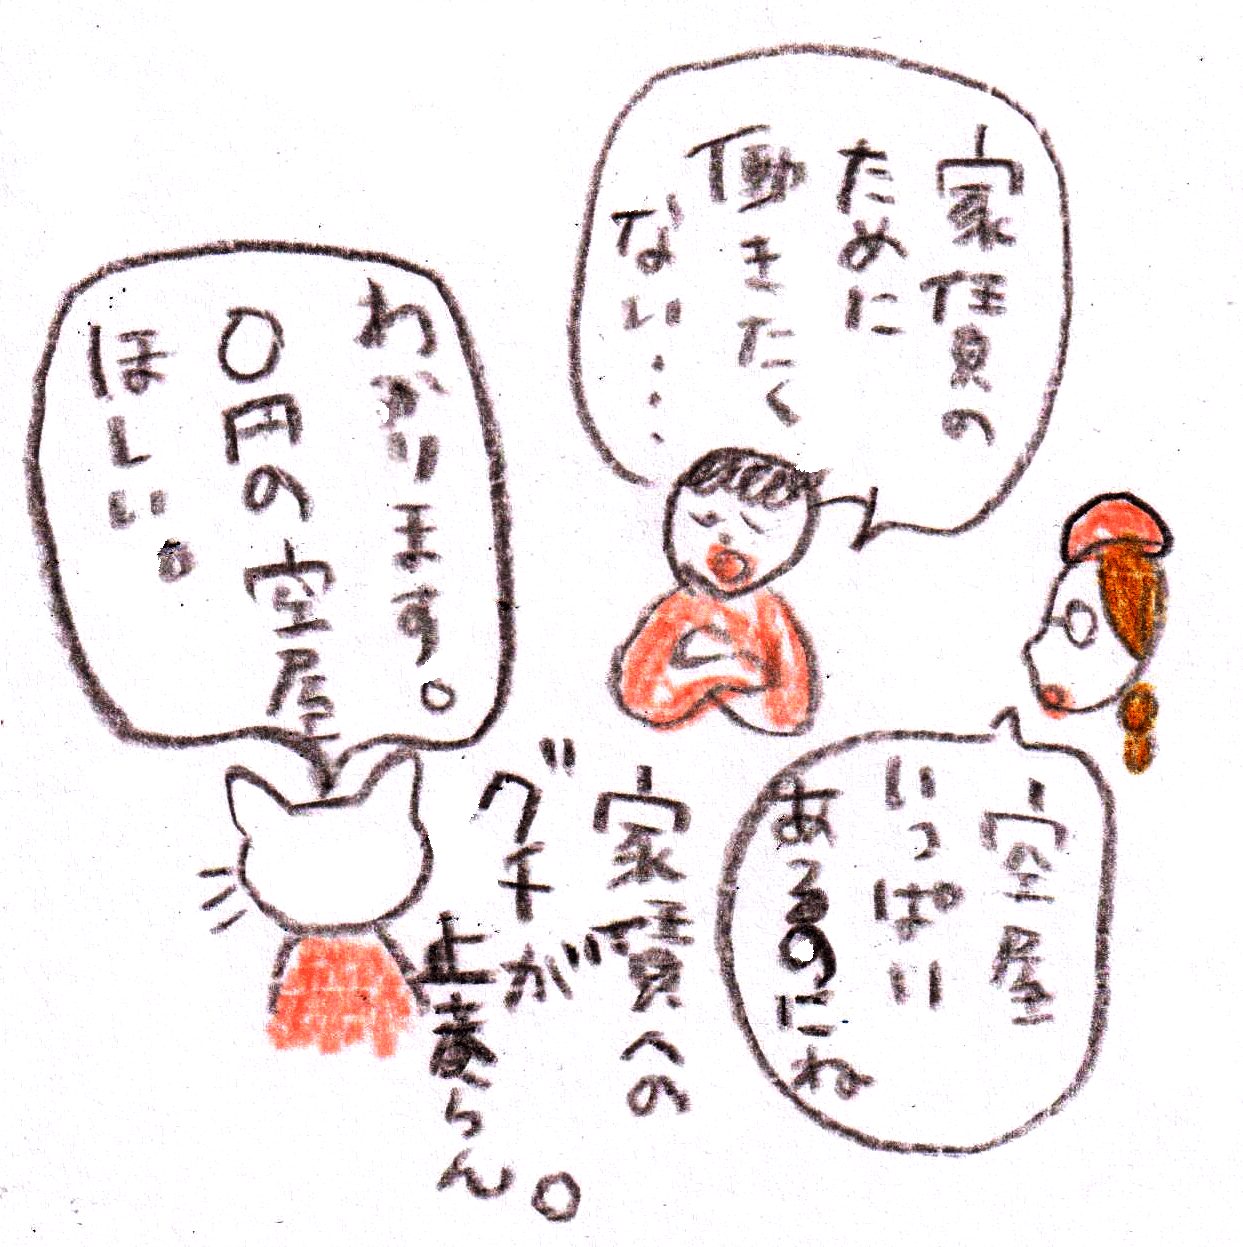 家賃の
ために
働きたく
ない…
空屋
いっぱい
あるのにね
わかります。
0円の空屋
ほしい。
家賃への
グチが
止まらん。